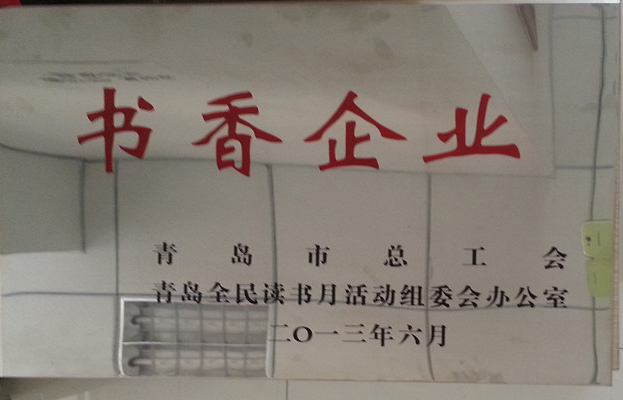 书香企业
青岛市总工会
青岛全民读书月活动组委会办公室
二〇一三年六月